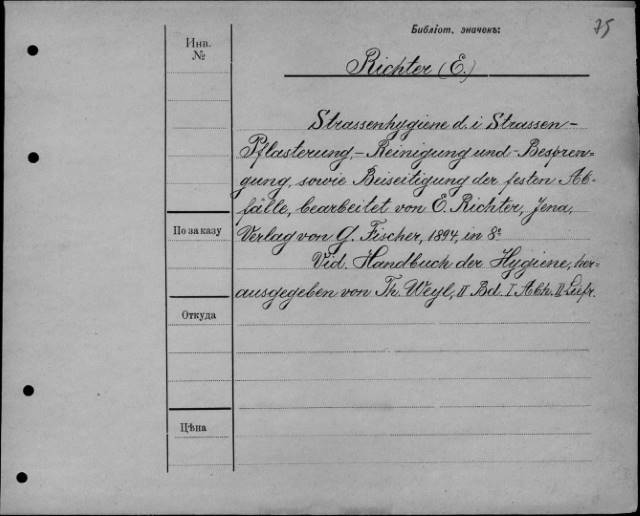 Библіот. значекъ:
75
Инв.
№
Richter (E.)
Strassenhygiene d. i Strassen-
Pflasterung,- Reinigung und -Bespren-
gung, sowie Beiseitigung der festen Ab-
fälle, bearbeitet von E. Richter, Jena,
По заказу
Verlag von G. Fischer, 1894, in 8º
Vid. Handbuch der Hygiene, her-
ausgegeben von Th. Weyl, II Bd. I Abth. II Liefr.
Откуда
Цѣна